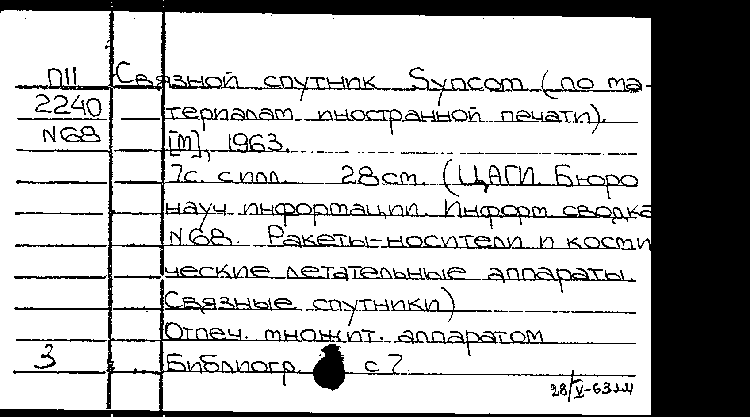 П11 Связной спутник Syncom (по ма-
2240 териалам иностранной печати).
N68 [М], 1963.
7с. с илл. 28 см. (ЦАГИ. Бюро
науч. информации. Информ. сводка
N68. Ракеты-носители и косми
ческие летательные аппараты.
Связные спутники)
Отпеч. множит. аппаратом
3 Библиогр. с 7
28/V-63